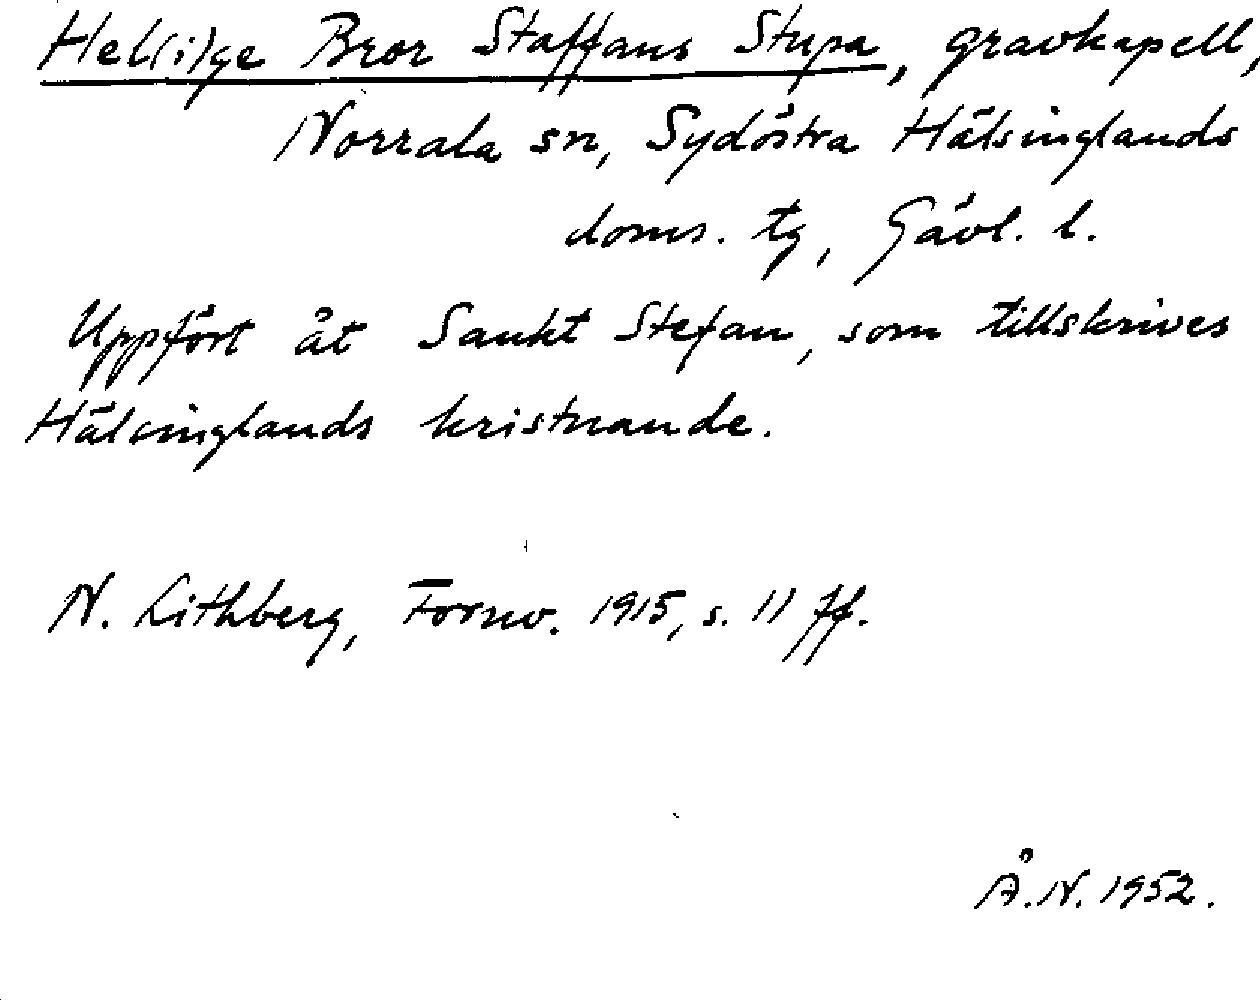 Hel(i)ge Bror Staffans Stupa, gravkapell,
Norrala sn, Sydöstra Hälsinglands
doms. tg, Gävl. l.
Uppfört åt Sankt Stefan, som tillskrives
Hälsinglands kristnande.
N. Lithberg, Fornv. 1915, s. 11 ff.
Å.N. 1952.